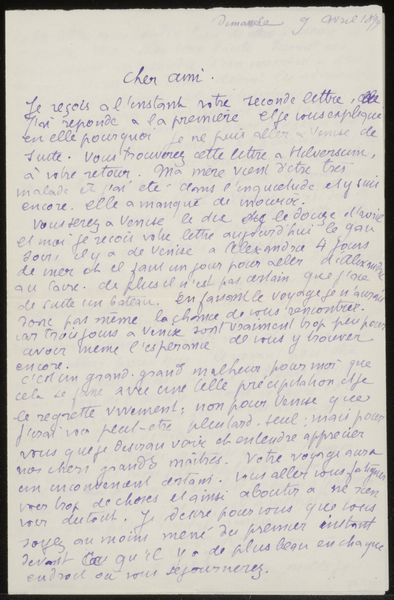 Dimanche 9 avril 189
Cher ami.
Je reçois a l'instant votre seconde lettre,
J'ai reponde a la première et je vous explique
en elle pourquoi je ne puis aller a Venise de
suite. Vous trouverez cette lettre a Hilversum,
à votre retour. Ma mère vient d'être très
malade et j'ai été dans l'inquietude et y suis
encore. elle a manqué de mourir.
Vous serez a Venise le dix le douze d'avril
et moi je recois votre lettre aujourd'hui le 9 au
soir, il y a de Venise a Alexandrie 4 jours
de mer et il faut un jour pour aller d'Alexandrie
au Caire. de plus il n'est pas certain que j'aie
de suite un bateau. en faisant le voyage je n'aurais
donc pas même la chance de vous rencontrer.
car trois jours a Venise sont vraiment trop peu pour
avoir même l'esperance de vous y trouver
encore.
C'est un grand grand malheur pour moi que
cela se fasse avec une telle précipitation et je
le regrette vivement; non pour Venise que
j'irai voir peut-etre plus tard, seul; mais pour
vous que je desirais voir et entendre apprecier
nos chers grands maîtres. Votre voyage aura
un inconvenient certain. Vous allez vous fatiguer
voir trop de choses et ainsi aboutir a ne rien
voir du tout. Je desire pour vous que vous
soyez au moins mené du premier instant
devant ce qu'il y a de plus beau en chaque
endroit où vous séjournerez.